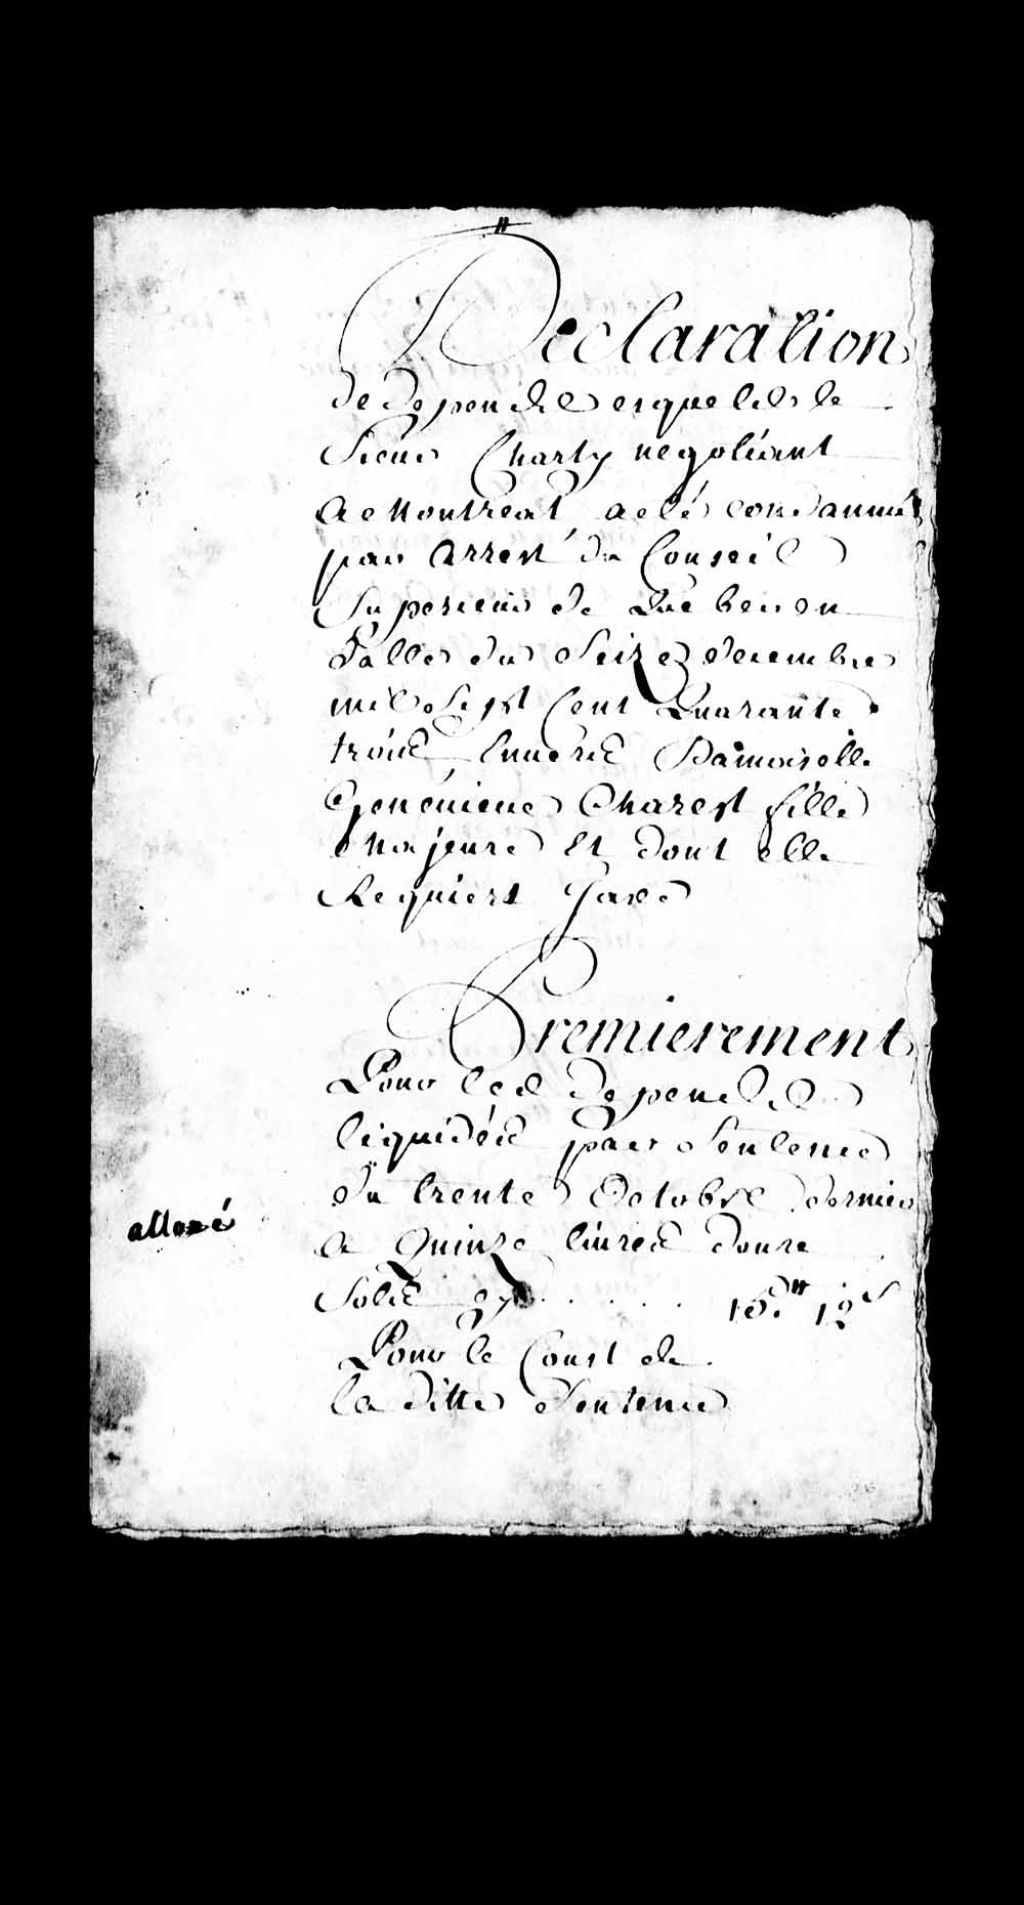 Declaration
de depens esquels le
Sieur Charly negotiant
a Montreal a eté condanné
par arrest du Conseil
Superieur de Quebec en
datte du Seize decembre
mil Sept Cent Quarante
trois Envers Damoiselle
Genevieve Charest fille
Majeure Et dont elle
Requiert Taxe
Premierement
Pour les depens
liquidés par Sentence
du trente Octobre dernier
alloué
a Quinze livres douze
Sols cy . . . . . 15.# 12s
Pour le Coust de
la ditte Sentence